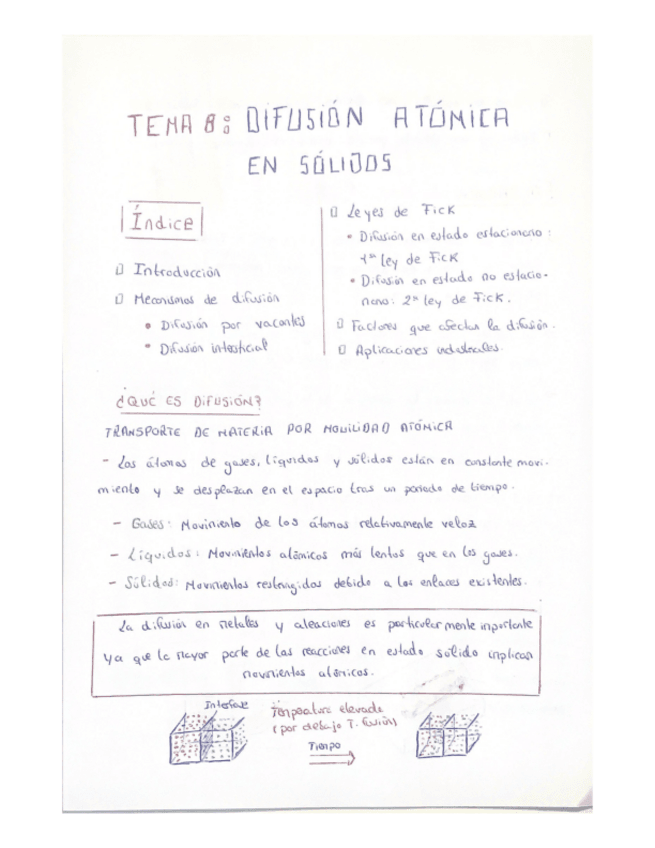 TEMA 8: DIFUSIÓN ATÓMICA
EN SÓLIDOS
Índice
Introducción
Mecanismos de difusión
• Difusión por vacantes
• Difusión intersticial
Leyes de Fick
• Difusión en estado estacionario:
1ª ley de Fick
• Difusión en estado no estacio-
nario: 2ª ley de Fick.
Factores que afectan la difusión.
Aplicaciones industriales.
¿QUÉ ES DIFUSIÓN?
TRANSPORTE DE MATERIA POR MOVILIDAD ATÓMICA
- Los átomos de gases, líquidos y sólidos están en constante movi-
miento y se desplazan en el espacio tras un periodo de tiempo.
- Gases: Movimiento de los átomos relativamente veloz
- Líquidos: Movimientos atómicos más lentos que en los gases.
- Sólidos: Movimientos restringidos debido a los enlaces existentes.
La difusión en metales y aleaciones es particularmente importante
ya que la mayor parte de las reacciones en estado sólido implican
movimientos atómicos.
Interfase
Temperatura elevada
(por debajo T. fusión)
Tiempo